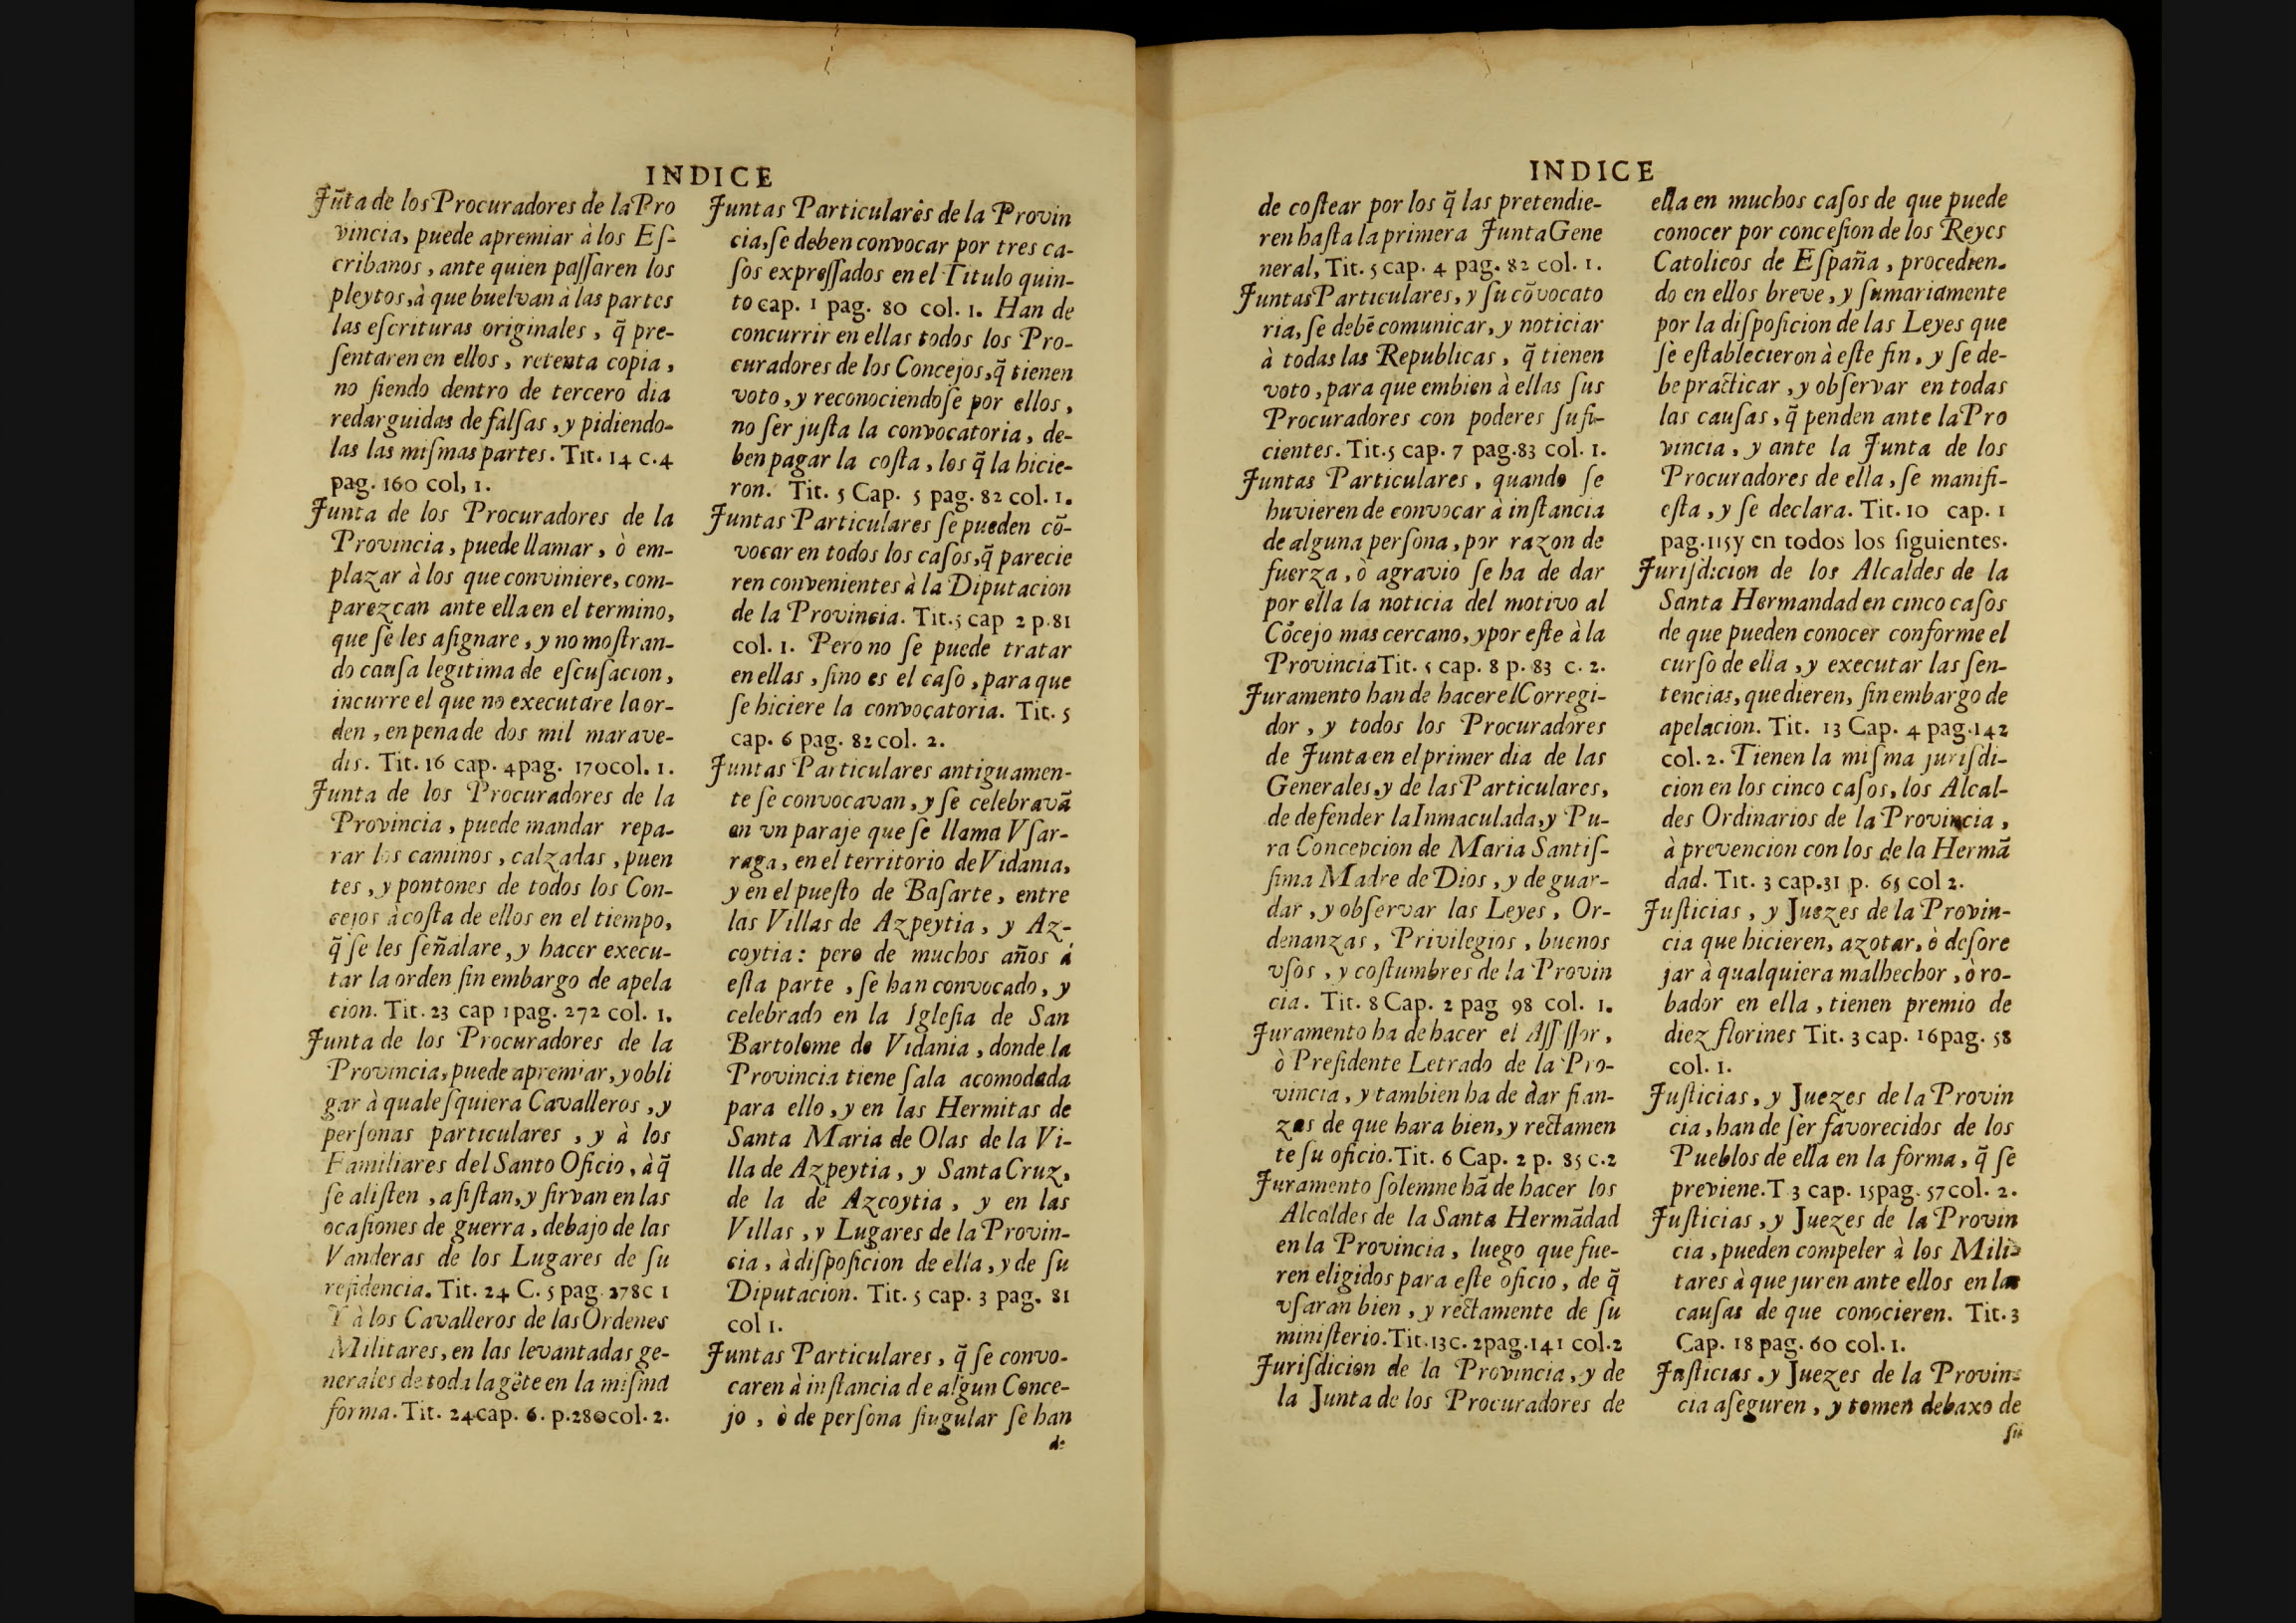 INDICE
Jũta de los Procuradores de la Pro
vincia, puede apremiar à los Eſ-
cribanos, ante quien paſſaren los
pleytos, à que buelvan à las partes
las eſcrituras originales, q̃ pre-
ſentaren en ellos, retenta copia,
no ſiendo dentro de tercero dia
redarguidas de falſas, y pidiendo-
las las miſmas partes. Tit. 14 c.4
pag. 160 col, 1.
Junta de los Procuradores de la
Provincia, puede llamar, ò em-
plazar à los que conviniere, com-
parezcan ante ella en el termino,
que ſe les aſignare, y no moſtran-
do cauſa legitima de eſcuſacion,
incurre el que no executare la or-
den, en pena de dos mil marave-
dis. Tit. 16 cap. 4 pag. 170 col. 1.
Junta de los Procuradores de la
Provincia, puede mandar repa-
rar los caminos, calzadas, puen
tes, y pontones de todos los Con-
cejos à coſta de ellos en el tiempo,
q̃ ſe les ſeñalare, y hacer execu-
tar la orden ſin embargo de apela
cion. Tit. 23 cap 1 pag. 272 col. 1.
Junta de los Procuradores de la
Provincia, puede apremiar, y obli
gar à qualeſquiera Cavalleros, y
perſonas particulares, y à los
Familiares del Santo Oficio, à q̃
ſe aliſten, aſiſtan, y ſirvan en las
ocaſiones de guerra, debajo de las
Vanderas de los Lugares de ſu
reſidencia. Tit. 24 C. 5 pag. 278 c 1
Y à los Cavalleros de las Ordenes
Militares, en las levantadas ge-
nerales de toda la gẽte en la miſma
forma. Tit. 24 cap. 6. p. 280 col. 2.
Juntas Particulares de la Provin
cia, ſe deben convocar por tres ca-
ſos expreſſados en el Titulo quin-
to cap. 1 pag. 80 col. 1. Han de
concurrir en ellas todos los Pro-
curadores de los Concejos, q̃ tienen
voto, y reconociendoſe por ellos,
no ſer juſta la convocatoria, de-
ben pagar la coſta, los q̃ la hicie-
ron. Tit. 5 Cap. 5 pag. 82 col. 1.
Juntas Particulares ſe pueden cõ-
vocar en todos los caſos, q̃ parecie
ren convenientes à la Diputacion
de la Provincia. Tit. 5 cap 2 p. 81
col. 1. Pero no ſe puede tratar
en ellas, ſino es el caſo, para que
ſe hiciere la convocatoria. Tit. 5
cap. 6 pag. 82 col. 2.
Juntas Particulares antiguamen-
te ſe convocavan, y ſe celebravã
en vn paraje que ſe llama Vſar-
raga, en el territorio de Vidania,
y en el pueſto de Baſarte, entre
las Villas de Azpeytia, y Az-
coytia: pero de muchos años á
eſta parte, ſe han convocado, y
celebrado en la Igleſia de San
Bartolome de Vidania, donde la
Provincia tiene ſala acomodada
para ello, y en las Hermitas de
Santa Maria de Olas de la Vi-
lla de Azpeytia, y Santa Cruz,
de la de Azcoytia, y en las
Villas, y Lugares de la Provin-
cia, à diſpoſicion de ella, y de ſu
Diputacion. Tit. 5 cap. 3 pag. 81
col 1.
Juntas Particulares, q̃ ſe convo-
caren à inſtancia de algun Conce-
jo, ò de perſona ſiugular ſe han
de
INDICE
de coſtear por los q̃ las pretendie-
ren haſta la primera Junta Gene
neral, Tit. 5 cap. 4 pag. 82 col. 1.
Juntas Particulares, y ſu cõvocato
ria, ſe debẽ comunicar, y noticiar
à todas las Republicas, q̃ tienen
voto, para que embien à ellas ſus
Procuradores con poderes ſufi-
cientes. Tit. 5 cap. 7 pag. 83 col. 1.
Juntas Particulares, quando ſe
huvieren de convocar à inſtancia
de alguna perſona, por razon de
fuerza, ò agravio ſe ha de dar
por ella la noticia del motivo al
Cõcejo mas cercano, y por eſte à la
Provincia Tit. 5 cap. 8 p. 83 c. 2.
Juramento han de hacer el Corregi-
dor, y todos los Procuradores
de Junta en el primer dia de las
Generales, y de las Particulares,
de defender la Inmaculada, y Pu-
ra Concepcion de Maria Santiſ-
ſima Madre de Dios, y de guar-
dar, y obſervar las Leyes, Or-
denanzas, Privilegios, buenos
vſos, y coſtumbres de la Provin
cia. Tit. 8 Cap. 2 pag 98 col. 1.
Juramento ha de hacer el Aſſeſſor,
ò Preſidente Letrado de la Pro-
vincia, y tambien ha de dar fian-
zas de que hara bien, y rectamen
te ſu oficio. Tit. 6 Cap. 2 p. 85 c. 2
Juramento ſolemne hã de hacer los
Alcaldes de la Santa Hermãdad
en la Provincia, luego que fue-
ren eligidos para eſte oficio, de q̃
vſaran bien, y rectamente de ſu
miniſterio. Tit. 13 c. 2 pag. 141 col. 2
Juriſdicion de la Provincia, y de
la Junta de los Procuradores de
ella en muchos caſos de que puede
conocer por conceſion de los Reyes
Catolicos de Eſpaña, procedien-
do en ellos breve, y ſumariamente
por la diſpoſicion de las Leyes que
ſe eſtablecieron à eſte fin, y ſe de-
be practicar, y obſervar en todas
las cauſas, q̃ penden ante la Pro
vincia, y ante la Junta de los
Procuradores de ella, ſe manifi-
eſta, y ſe declara. Tit. 10 cap. 1
pag. 115 y en todos los ſiguientes.
Juriſdicion de los Alcaldes de la
Santa Hermandad en cinco caſos
de que pueden conocer conforme el
curſo de ella, y executar las ſen-
tencias, que dieren, ſin embargo de
apelacion. Tit. 13 Cap. 4 pag. 142
col. 2. Tienen la miſma juriſdi-
cion en los cinco caſos, los Alcal-
des Ordinarios de la Provincia,
à prevencion con los de la Hermã
dad. Tit. 3 cap. 31 p. 65 col 2.
Juſticias, y Juezes de la Provin-
cia que hicieren, azotar, ò deſore
jar à qualquiera malhechor, ò ro-
bador en ella, tienen premio de
diez florines Tit. 3 cap. 16 pag. 58
col. 1.
Juſticias, y Juezes de la Provin
cia, han de ſer favorecidos de los
Pueblos de ella en la forma, q̃ ſe
previene. T 3 cap. 15 pag. 57 col. 2.
Juſticias, y Juezes de la Provin
cia, pueden compeler à los Mili-
tares à que juren ante ellos en las
cauſas de que conocieren. Tit. 3
Cap. 18 pag. 60 col. 1.
Juſticias, y Juezes de la Provin-
cia aſeguren, y tomen debaxo de
ſu